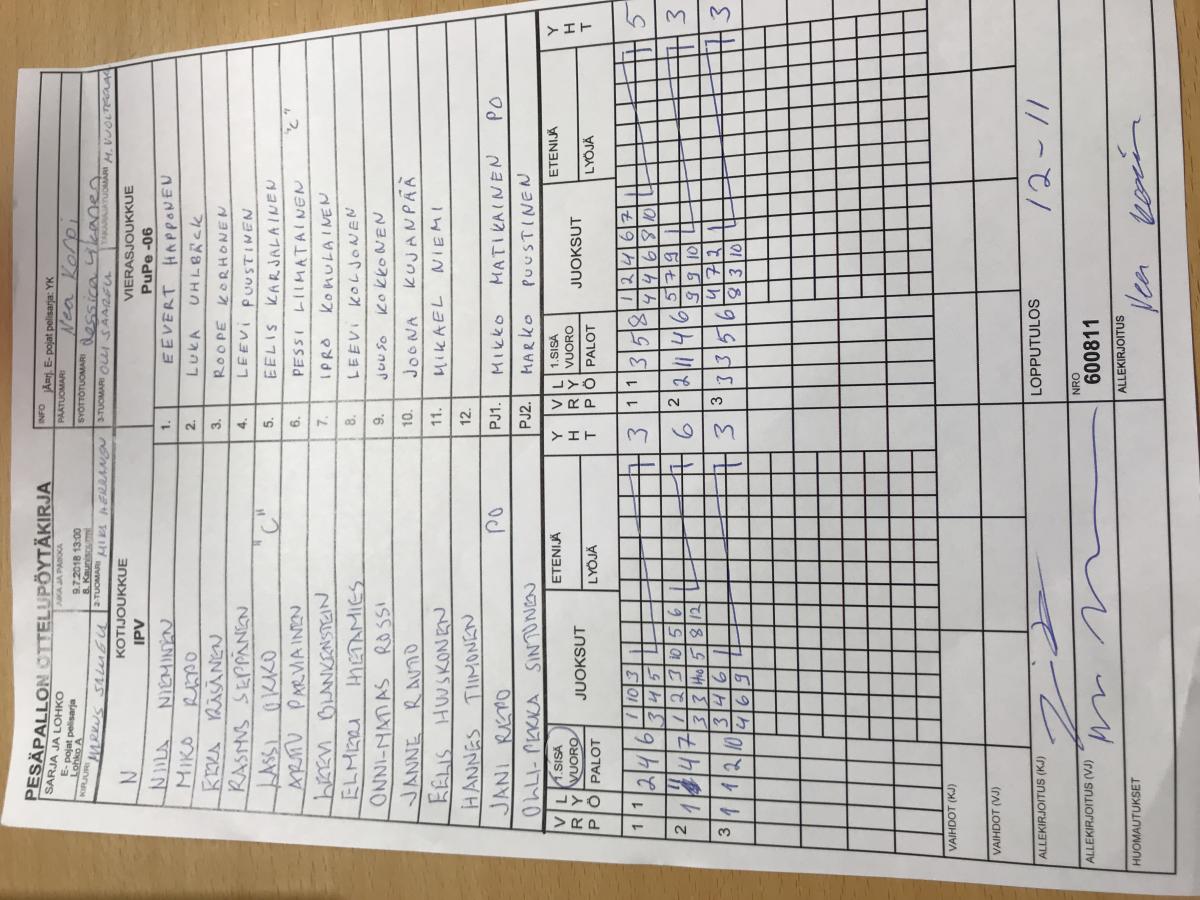 PESÄPALLON OTTELUPÖYTÄKIRJA
SARJA JA LOHKO
E- pojat pelisarja
Lohko A
AIKA JA PAIKKA
9.7.2018 13:00
INFO jÄrj. E- pojat pelisarja: YK
PÄÄTUOMARI Nea Korpi
SYÖTTÖTUOMARI Jessica Ykänen
KIRJURI
2-TUOMARI
3-TUOMARI OLLI SAAREN
TAKARAJATUOMARI
KOTIJOUKKUE
IPV
VIERASJOUKKUE
PuPe -06
N
NIILA NIEMINEN 1. EEVERT HAPPONEN
MIKO REPO 2. LUKA UHLBÄCK
RÄSÄNEN 3. ROOPE KORHONEN
RASMUS SEPPÄNEN 4. LEEVI PUUSTINEN
LASSI UKKO "C" 5. EELIS KARJALAINEN
ARTTU PARVIAINEN 6. PESSI LIIMATAINEN "C"
LEEVI BLANKENSTEIN 7. KOHULAINEN
ELMERI HIETAMIES 8. LEEVI KOLJONEN
ONNI-MATIAS ROSSI 9. JUUSO KOKKONEN
JANNE RAUTIO 10. JOONA KUJANPÄÄ
EELIS HUUSKONEN 11. MIKAEL NIEMI
HANNES TIIMONEN 12.
JANI REPO PO PJ1. MIKKO MATIKAINEN PO
OLLI-PEKKA SINTONEN PJ2. MARKO PUUSTINEN
VRP LYÖ 1.SISÄ VUORO PALOT JUOKSUT ETENIJÄ LYÖJÄ YHT VRP LYÖ 1.SISÄ VUORO PALOT JUOKSUT ETENIJÄ LYÖJÄ YHT
1 1 2 4 6 1 10 3 3 1 1 3 5 8 1 2 4 6 7 5
3 4 5 4 4 6 8 10
2 4 7 1 2 3 10 5 6 6 2 2 11 4 6 5 7 9 3
3 3 5 8 12 9 9 10
3 1 1 2 10 3 4 6 3 3 3 3 5 6 4 7 2 3
4 6 9 8 3 10
VAIHDOT (KJ)
VAIHDOT (VJ)
ALLEKIRJOITUS (KJ)
LOPPUTULOS 12-11
ALLEKIRJOITUS (VJ)
NRO
600811
HUOMAUTUKSET
ALLEKIRJOITUS
Nea Korpi